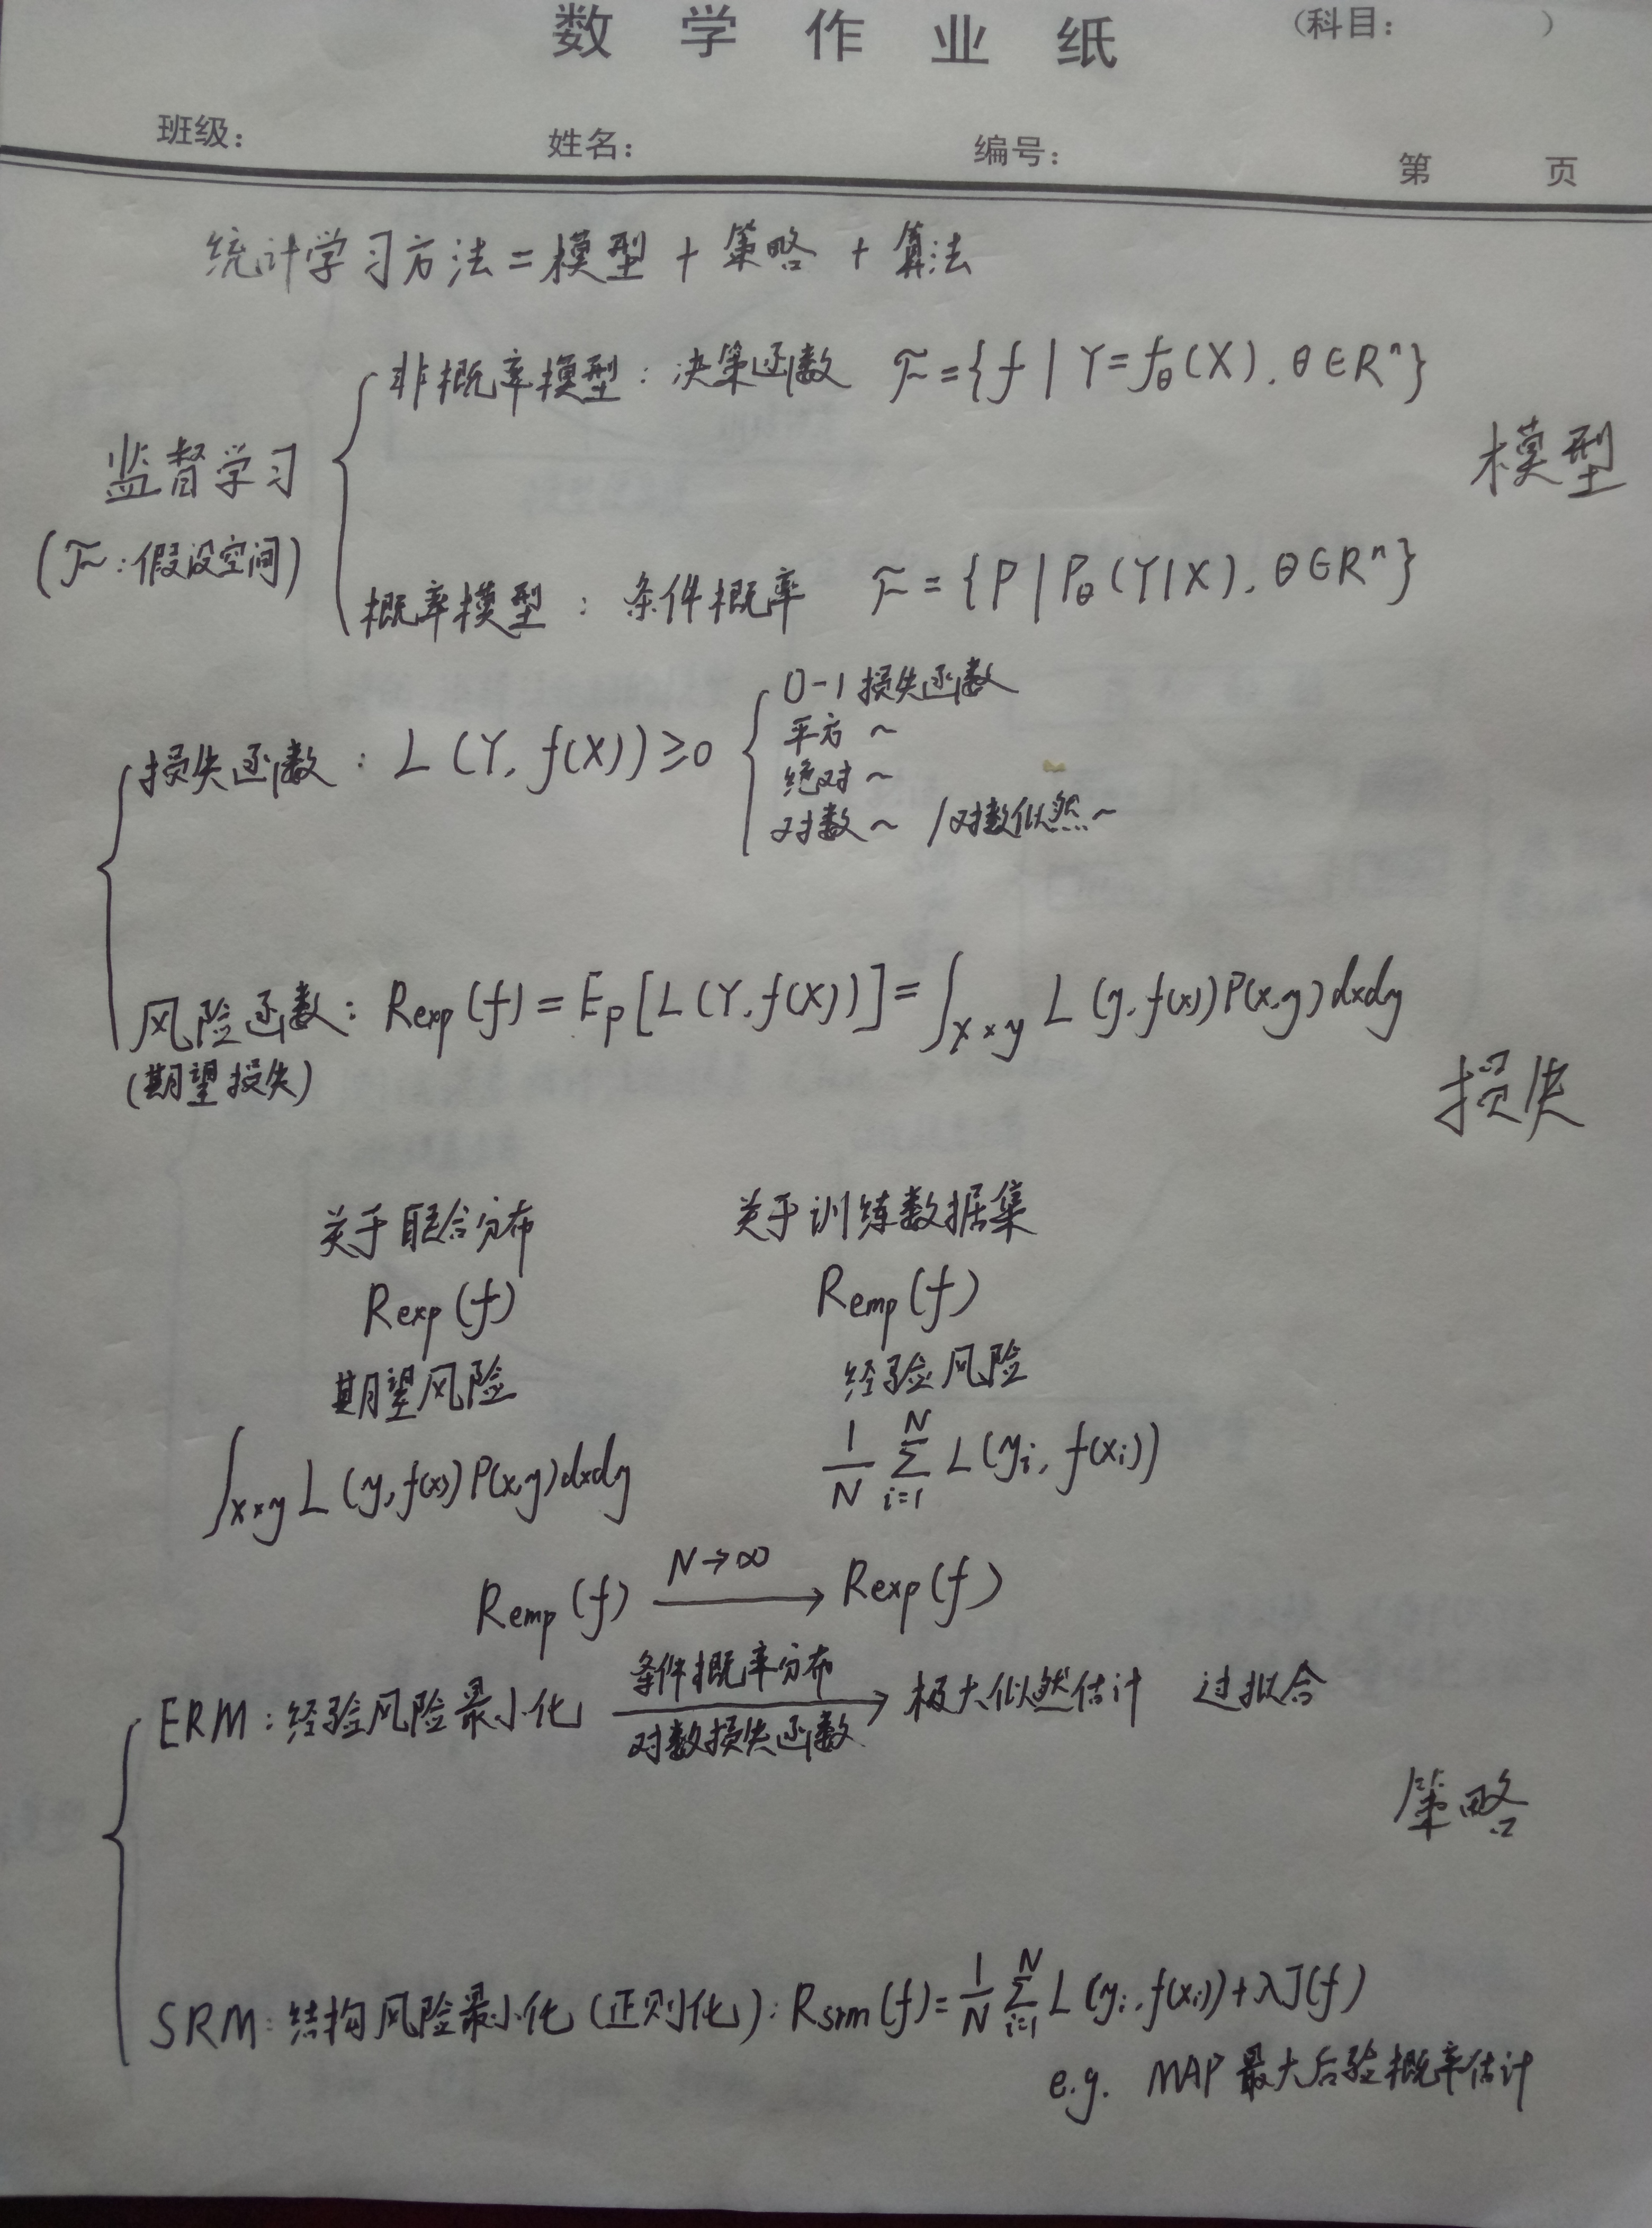 数学作业纸 （科目： ）
班级： 姓名： 编号： 第 页
统计学习方法 = 模型 + 策略 + 算法
非概率模型：决策函数 ℱ = {f | Y = f_θ(X), θ∈R^n}
监督学习 模型
(ℱ：假设空间)
概率模型：条件概率 ℱ = {P | P_θ(Y|X), θ∈R^n}
0-1 损失函数
平方 ~
损失函数：L(Y, f(X)) ≥ 0
绝对 ~
对数 ~ / 对数似然 ~
风险函数：Rexp(f) = E_P[L(Y, f(X))] = ∫_{X×y} L(y, f(x))P(x,y)dxdy
(期望损失) 损失
关于联合分布 关于训练数据集
Rexp(f) Remp(f)
期望风险 经验风险
∫_{X×y} L(y, f(x))P(x,y)dxdy 1/N Σ_{i=1}^{N} L(y_i, f(x_i))
N→∞
Remp(f) ⟶ Rexp(f)
条件概率分布
ERM：经验风险最小化 ⟶ 极大似然估计 过拟合
对数损失函数
策略
SRM：结构风险最小化(正则化)：Rsrm(f) = 1/N Σ_{i=1}^{N} L(y_i, f(x_i)) + λJ(f)
e.g. MAP 最大后验概率估计